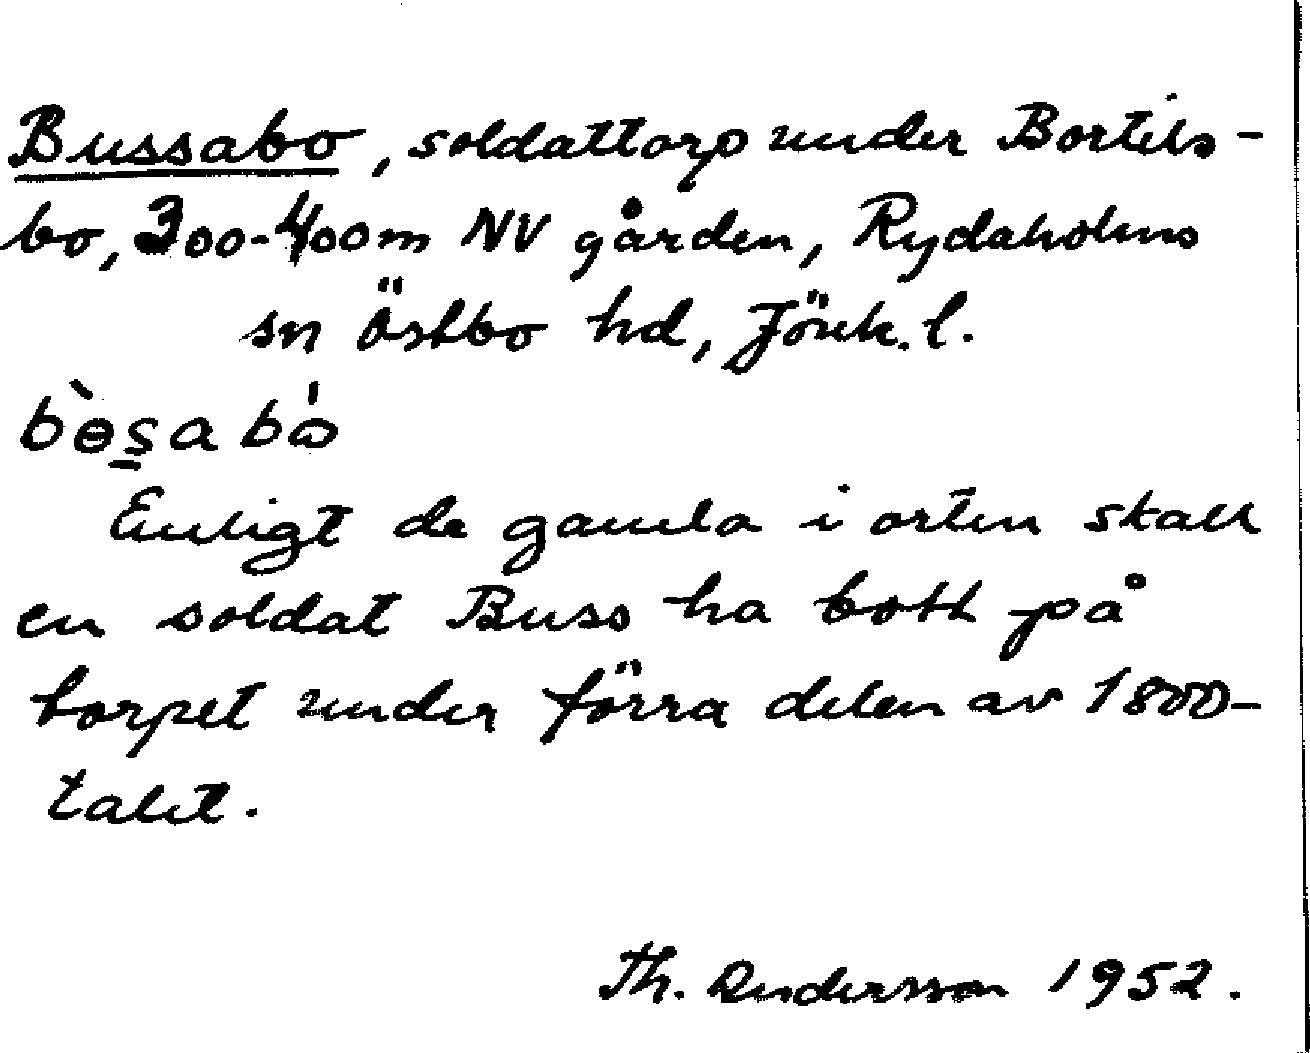 Bussabo, soldattorp under Bortils-
bo, 300-400m NV gården, Rydaholms
sn Östbo hd, Jönk. l.
bɵ̀s̲abɷ̀
Enligt de gamla i orten skall
en soldat Buss ha bott på
torpet under förra delen av 1800-
talet.
Th. Andersson 1952.